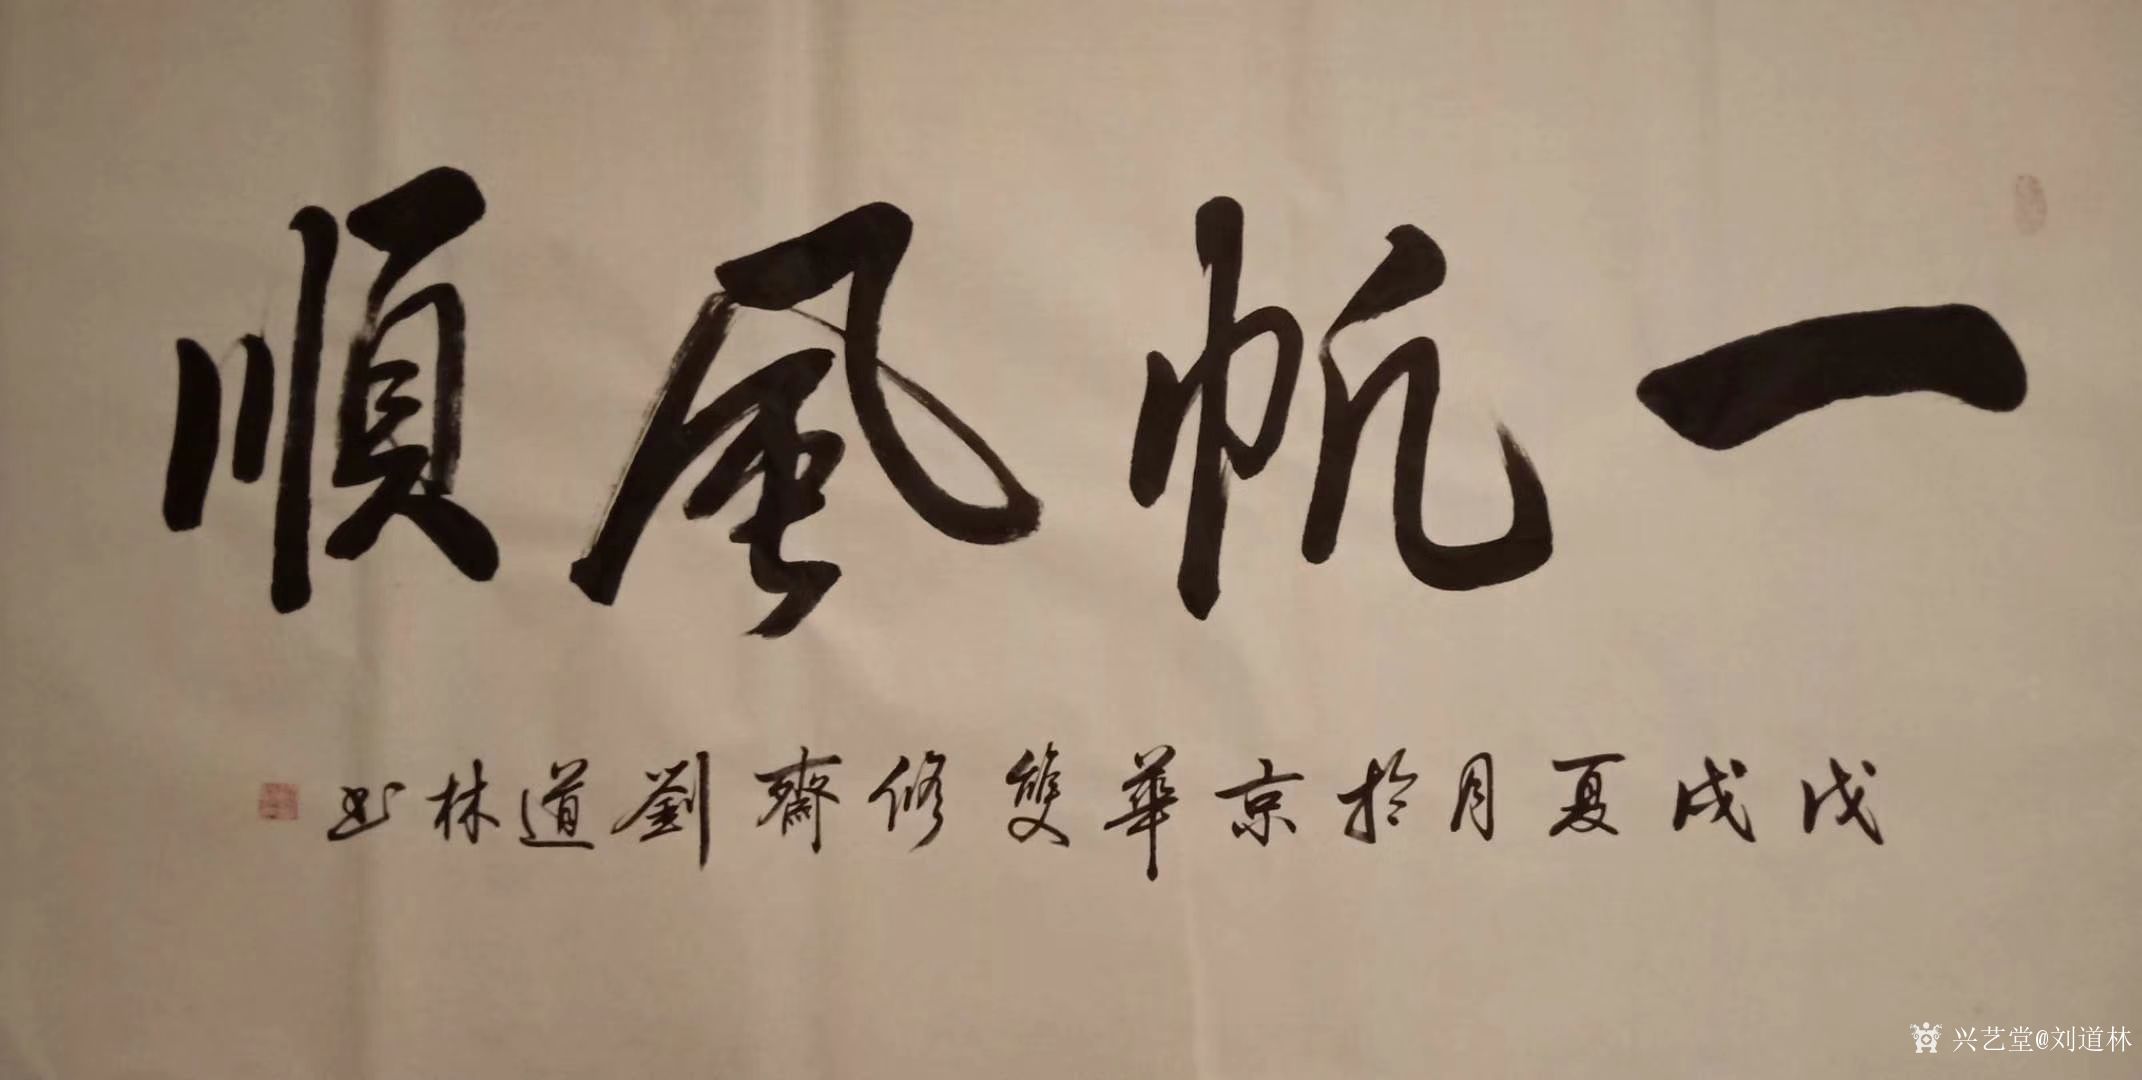 一帆風順
戊戌夏月於京華雙修齋劉道林書
兴艺堂@刘道林